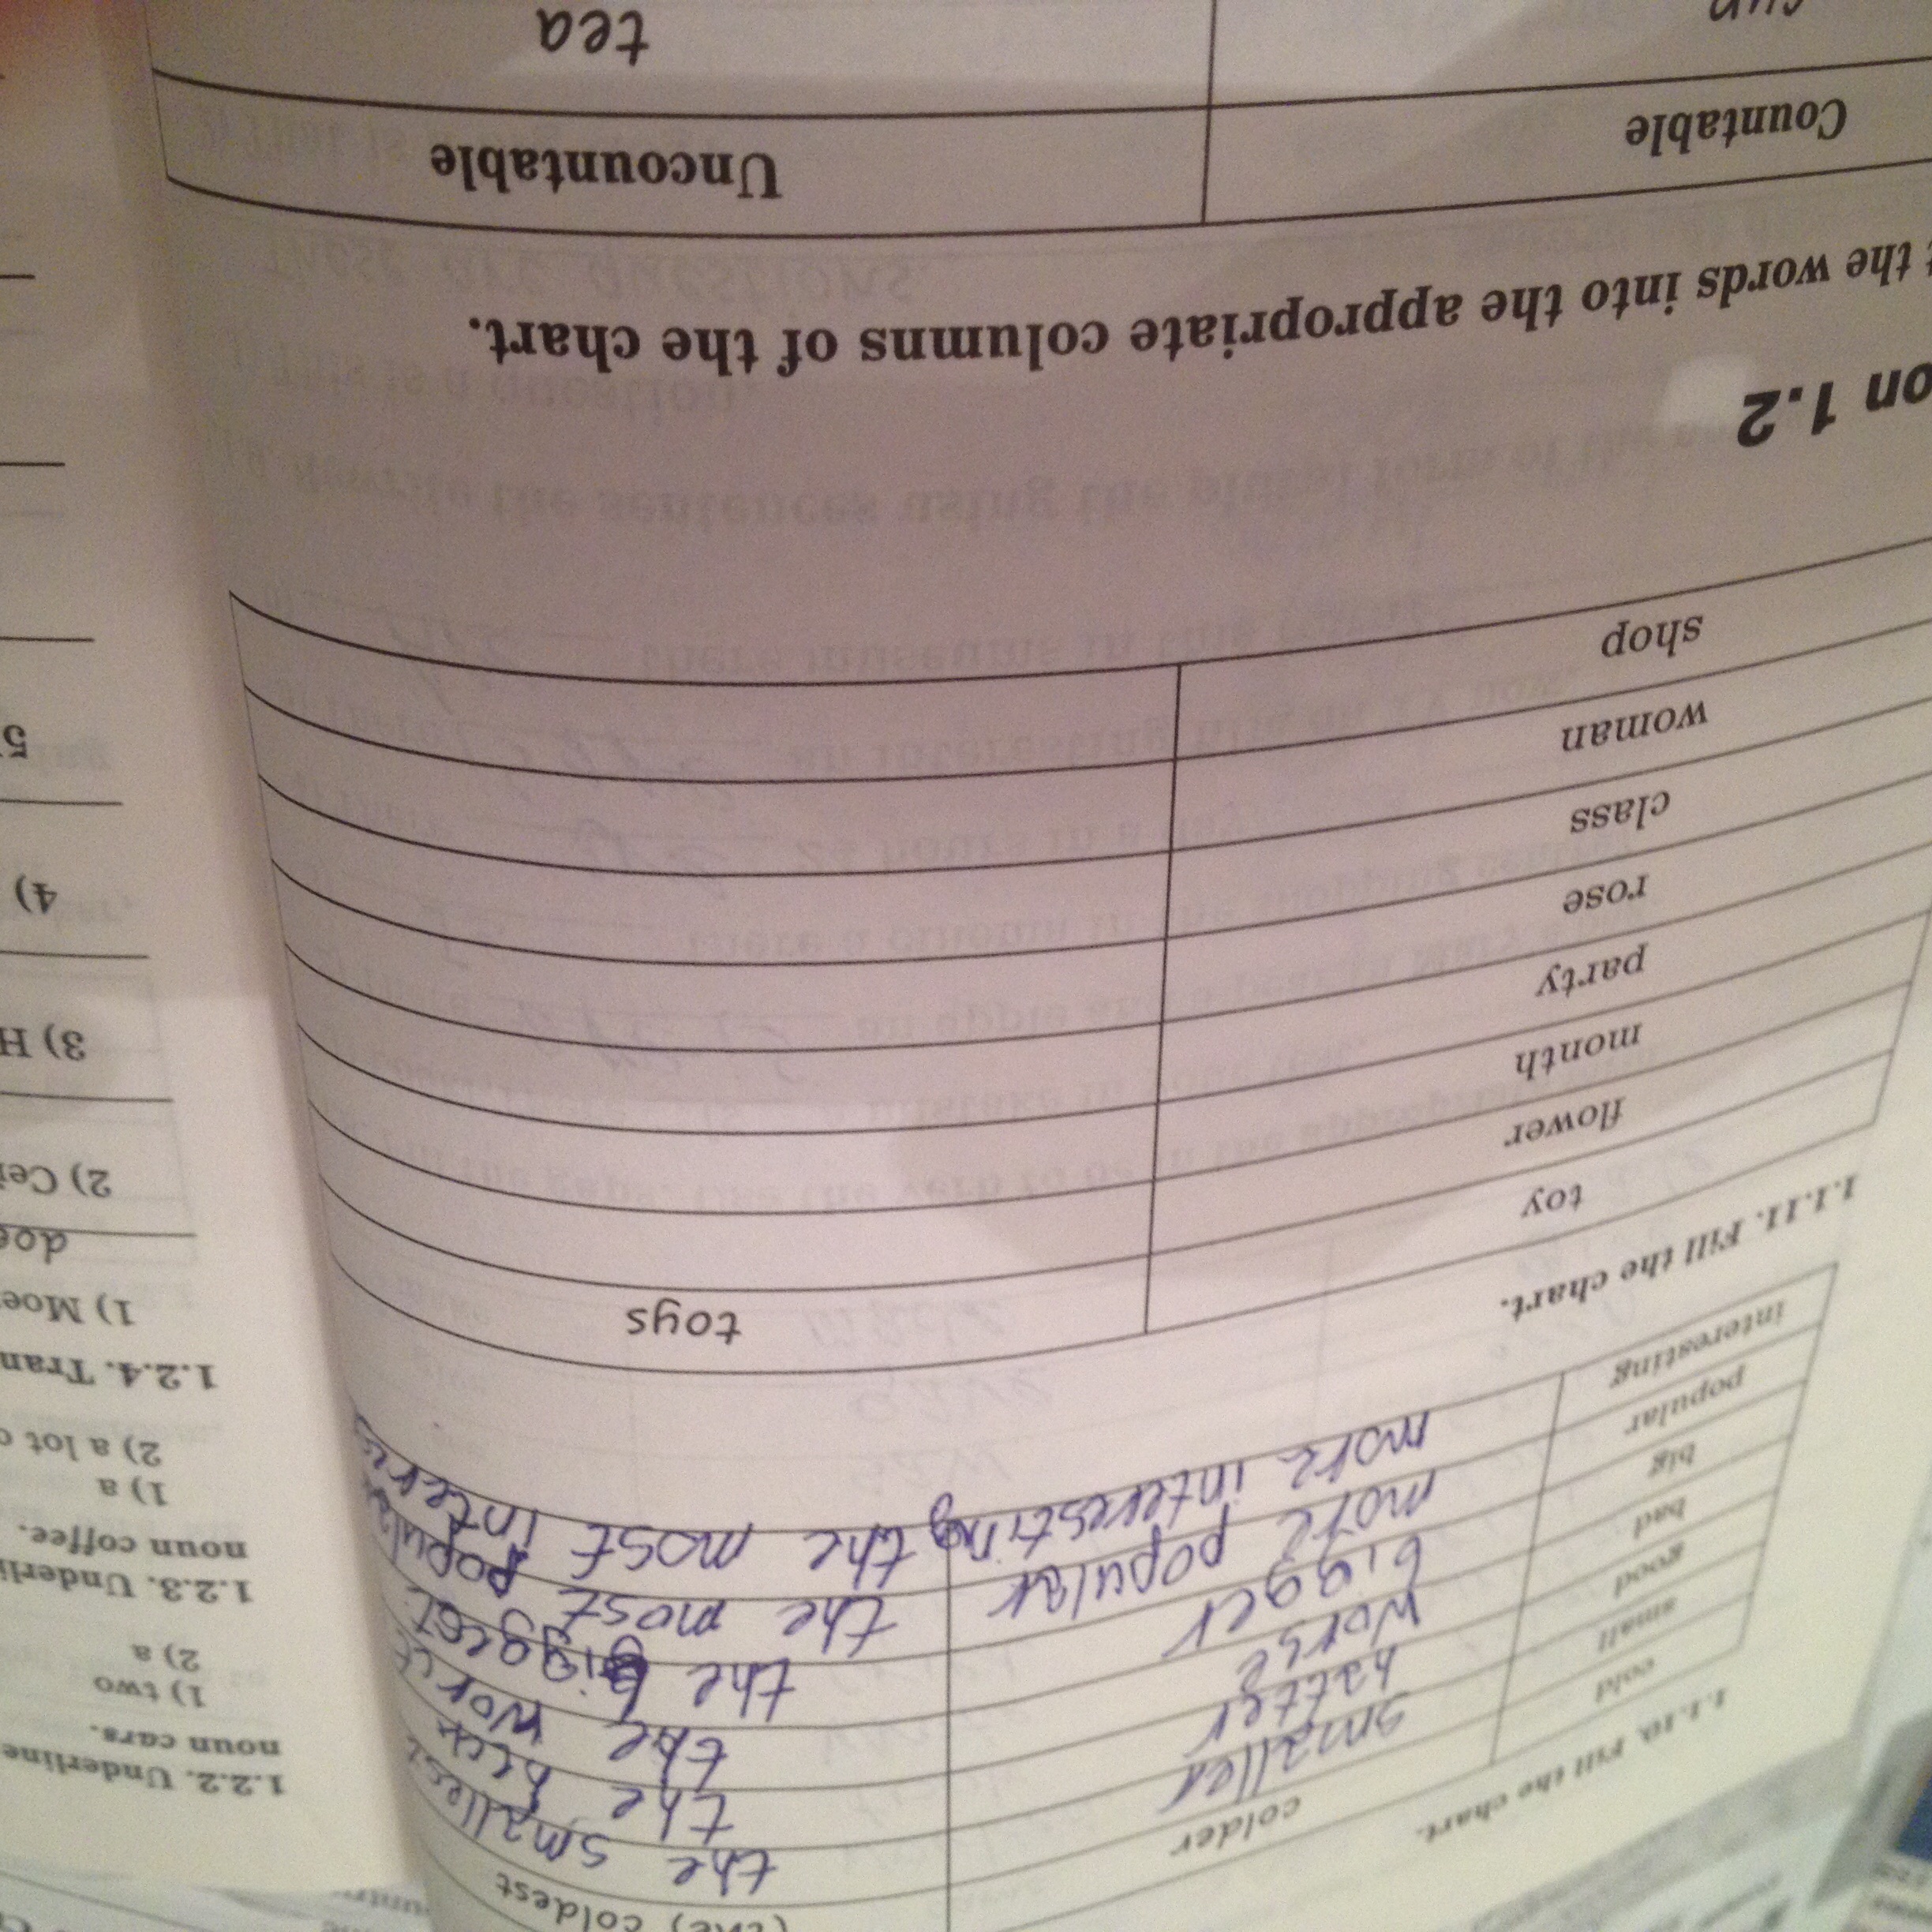 1.1.10. Fill the chart.
cold colder (the) coldest
small smaller the smallest
good better the best
bad worse the worst
big bigger the biggest
popular more popular the most popular
interesting more interesting the most interes
1.1.11. Fill the chart.
toy toys
flower
month
party
rose
class
woman
shop
on 1.2
the words into the appropriate columns of the chart.
Countable Uncountable
tea
1.2.2. Underline
noun cars.
1) two
2) a
1.2.3. Underli
noun coffee.
1) a
2) a lot o
1.2.4. Tran
1) Moe
doe
2) Cei
3) H
4)
5